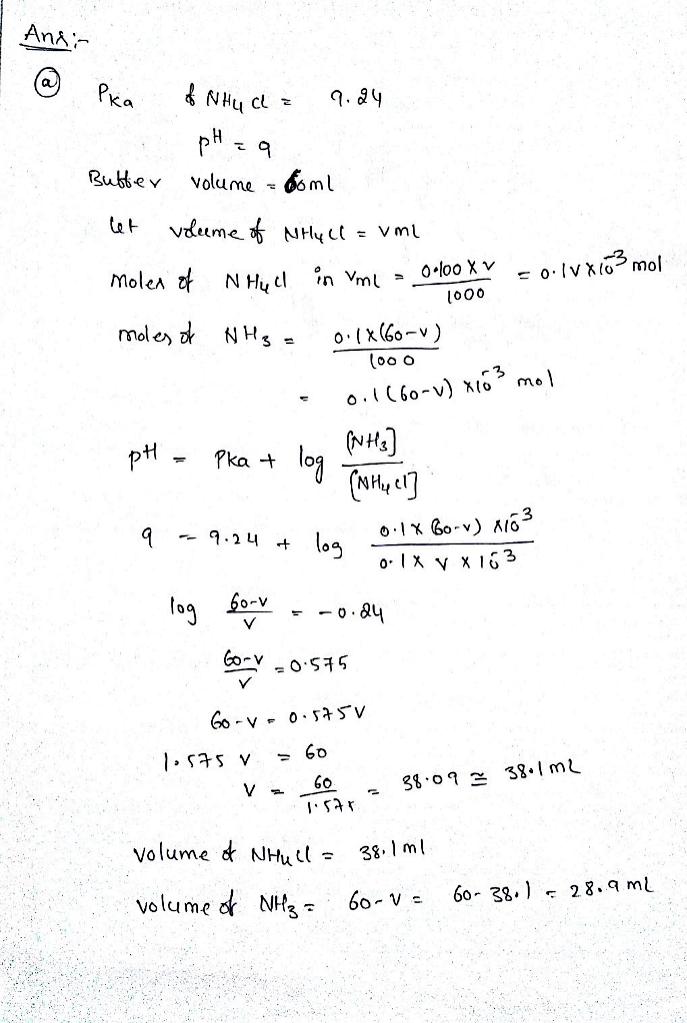 Ans:-
(a) Pka of NH4Cl = 9.24
pH = 9
Buffer volume = 60ml
let volume of NH4Cl = vml
moles of NH4Cl in vml = 0.100 x v / 1000 = 0.1v x 10^-3 mol
moles of NH3 = 0.1x(60-v) / 1000
= 0.1(60-v) x10^-3 mol
pH = Pka + log [NH3] / [NH4Cl]
9 = 9.24 + log 0.1x(60-v) x10^-3 / 0.1x v x 10^-3
log 60-v / v = -0.24
60-v / v = 0.575
60-v = 0.575v
1.575 v = 60
v = 60 / 1.575 = 38.09 ≅ 38.1mL
volume of NH4Cl = 38.1ml
volume of NH3 = 60-v = 60-38.1 = 28.9mL